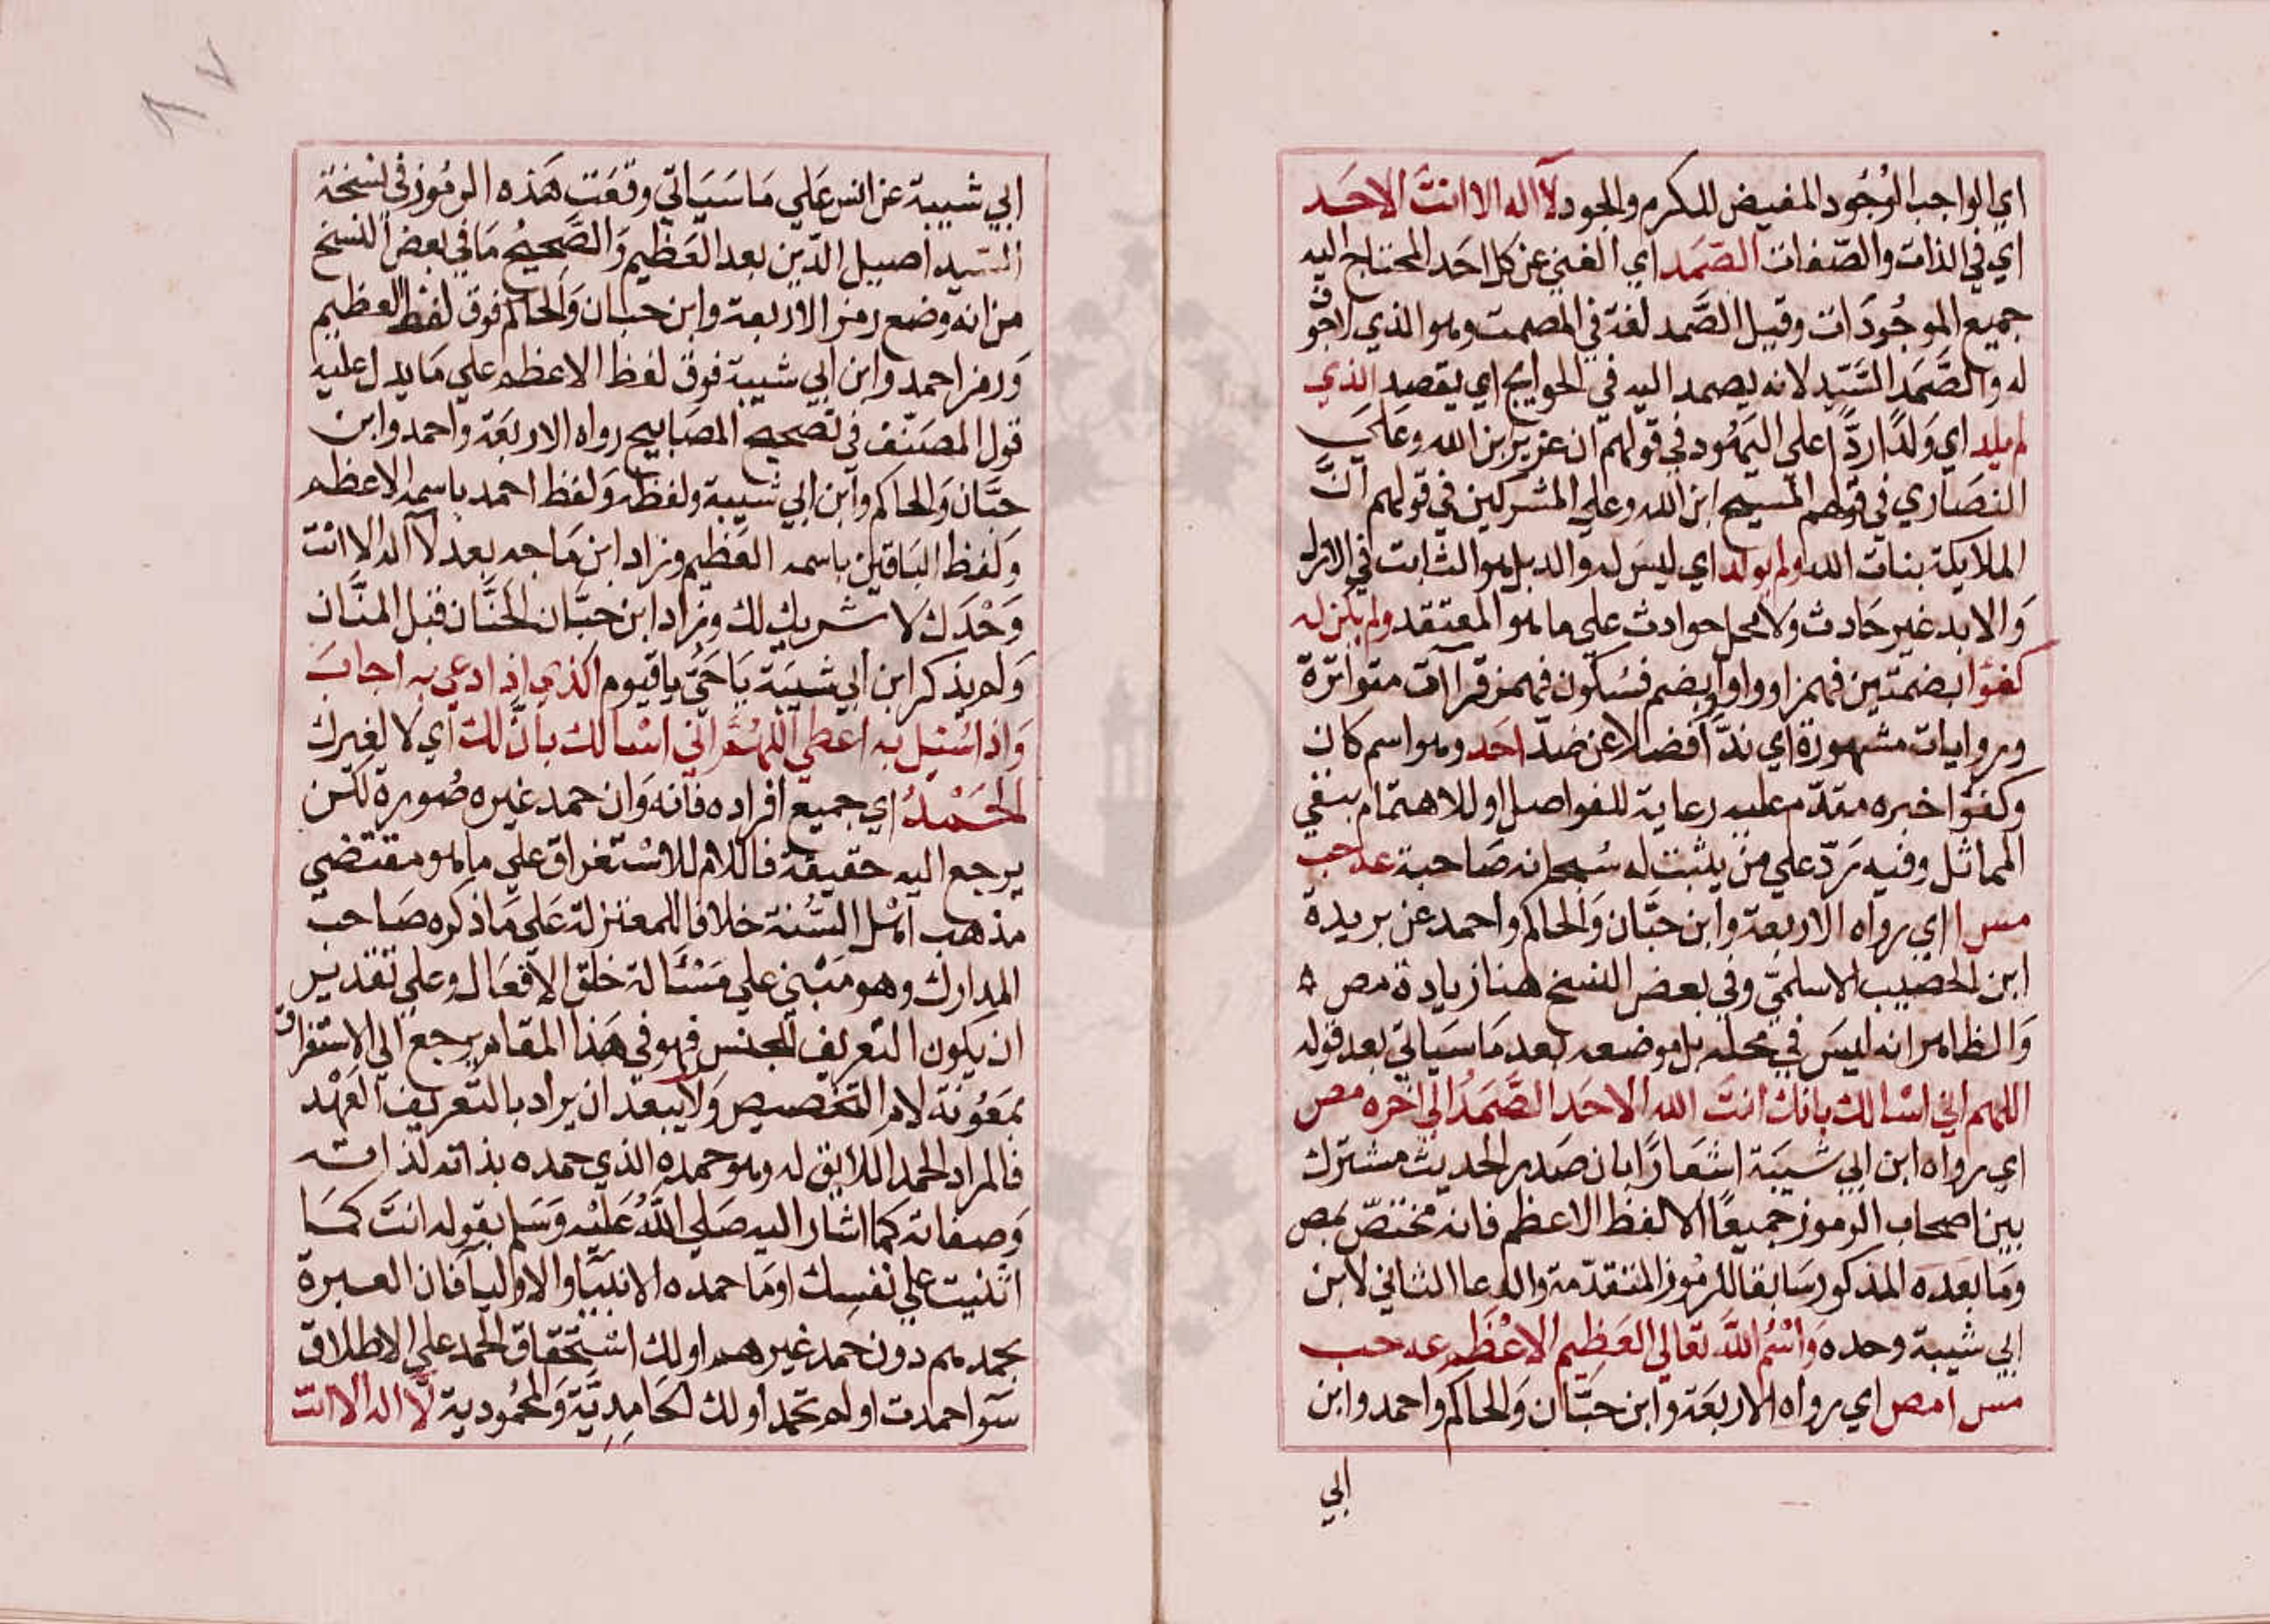 اي الواجب الوُجُود المفيض للكرم والجود لآ اله الا انتَ الاحَد
اي في الذات والصّفات الصّمَد اي الغني عن كل احَد المحتاج اليه
جميع الموجُودَات وقيل الصَّمد لغة في المصمت وهو الذي لاجوف
له والصَّمَد السَّيّد لانه يصمد اليه في الحوايج اي يقصد الذي
لم يلد اي وَلدًا ردًّا علي اليَهُود في قولهم ان عزير ابن الله وعَلَي
النصَاري في قولهم المسيح ابن الله وعلي المشركين في قولهم انَّ
الملايكة بنات الله ولم يولد اي ليسَ له والد بل هو الثابت في الازل
وَالابد غير حَادث ولا محل حوادث علي ما هو المعتقد ولم يكن له
كفؤا بضمتين فهمز او واو او بضم فسُكون فهمز قرآآت متواترة
وروايات مشهورة اي ندًّا فضلا عن ضدّ احَد وهو اسم كان
وكفؤا خبره مقدّم عليه رعاية للفواصل او للاهتمام بنفي
المماثل وفيه رَدّ علي من يثبت له سُبحانه صَاحبة عه حب
مس ا اي رواه الاربعَة وابن حبَّان وَالحاكم واحمد عن بريدة
ابن الحصيب الاسلميّ وفي بعض النسخ هنا زيادة مص ه
وَالظاهر انه ليسَ في محله بل موضعه بعد مَا سَيَاتي بعد قوله
اللهم اني اسْالك بانك انتَ الله الاحَد الصَّمَدُ الي اخره مص
اي رواه ابن ابي شيبَة اشعَارًا بان صَدر الحديث مشترك
بين اصحاب الرموز جميعًا الا لفظ الاعظم فانه مختصّ بمص
وَمَا بعَده المذكور سَابقا للرمُوز المتقدّمة والدعا الثاني لابن
ابي شيبة وحده وَاسْمُ اللَّه تعَالي العَظِيم الاعْظَم عه حب
مس ا مص اي رواه الاربعَة وابن حبَّان وَالحاكم واحمد وابن
ابي
ابي شيبة عن انس عَلي مَا سَيَاتي وقعَت هَذه الرمُوز في نسخة
السّيد اصيل الدّين بعد العَظيم وَالصَّحيحُ مَا في بعض النسخ
من انه وضع رمز الاربعة وابن حبان وَالحاكم فوق لفظ العظيم
وَرمز احمد وابن ابي شيبة فوق لفظ الاعظم علي مَا يدل عليه
قول المصَنّف في تصحيح المصَابيح رواه الاربَعَة واحمد وابن
حبَّان وَالحاكم وابن ابي شيبة ولفظه وَلفظ احمد باسمه الاعظم
وَلفظ البَاقين باسمه العَظيم وزاد ابن مَاجه بعد لآ اله الا انْت
وَحْدَك لا شريك لك وزاد ابن حبَّان الحنَّان قبل المنَّان
وَلم يذكر ابن ابي شيبَة يَا حَيُّ يا قيوم الذي اذا دعي به اجابَ
وَاذا سُئِل به اعطي اللهُمَّ اني اسْالك بانَّ لك اي لا لغيرك
الحَمْدُ اي جميع افراده فانه وَان حمد غيره صُورة لكن
يرجع اليه حقيقة فاللام للاسْتغراق علي ما هو مقتضي
مذهب اهْل السُّنة خلافا للمعتزلة عَلي مَا ذكره صَاحب
المدارك وهو مَبْني علي مَسْئَالة خلق الافعَال وعلي تقدير
ان يكون التعريف للجنس فهو في هَذا المقام يرجع الي الاستغراق
بمَعُونة لام التخصيص وَلا يبعد ان يراد بالتعريف العَهْد
فالمراد الحمد اللايق له وهو حمده الذي حمده بذاته لذاته
وَصفاته كما اشار اليه صَلي اللَّهُ عَلَيْه وَسَلم بقوله انتَ كَمَا
اثنيت علي نفسِك او مَا حمده الانبيَا والاوليا فان العبرة
بحمدهم دون حمد غيرهم او لك اسْتحقاق الحمد علي الاطلاق
سَوا حمدت او لم تحمد او لك الحَامِدِيَّة وَالمحُمُودية لَا اله الا انت